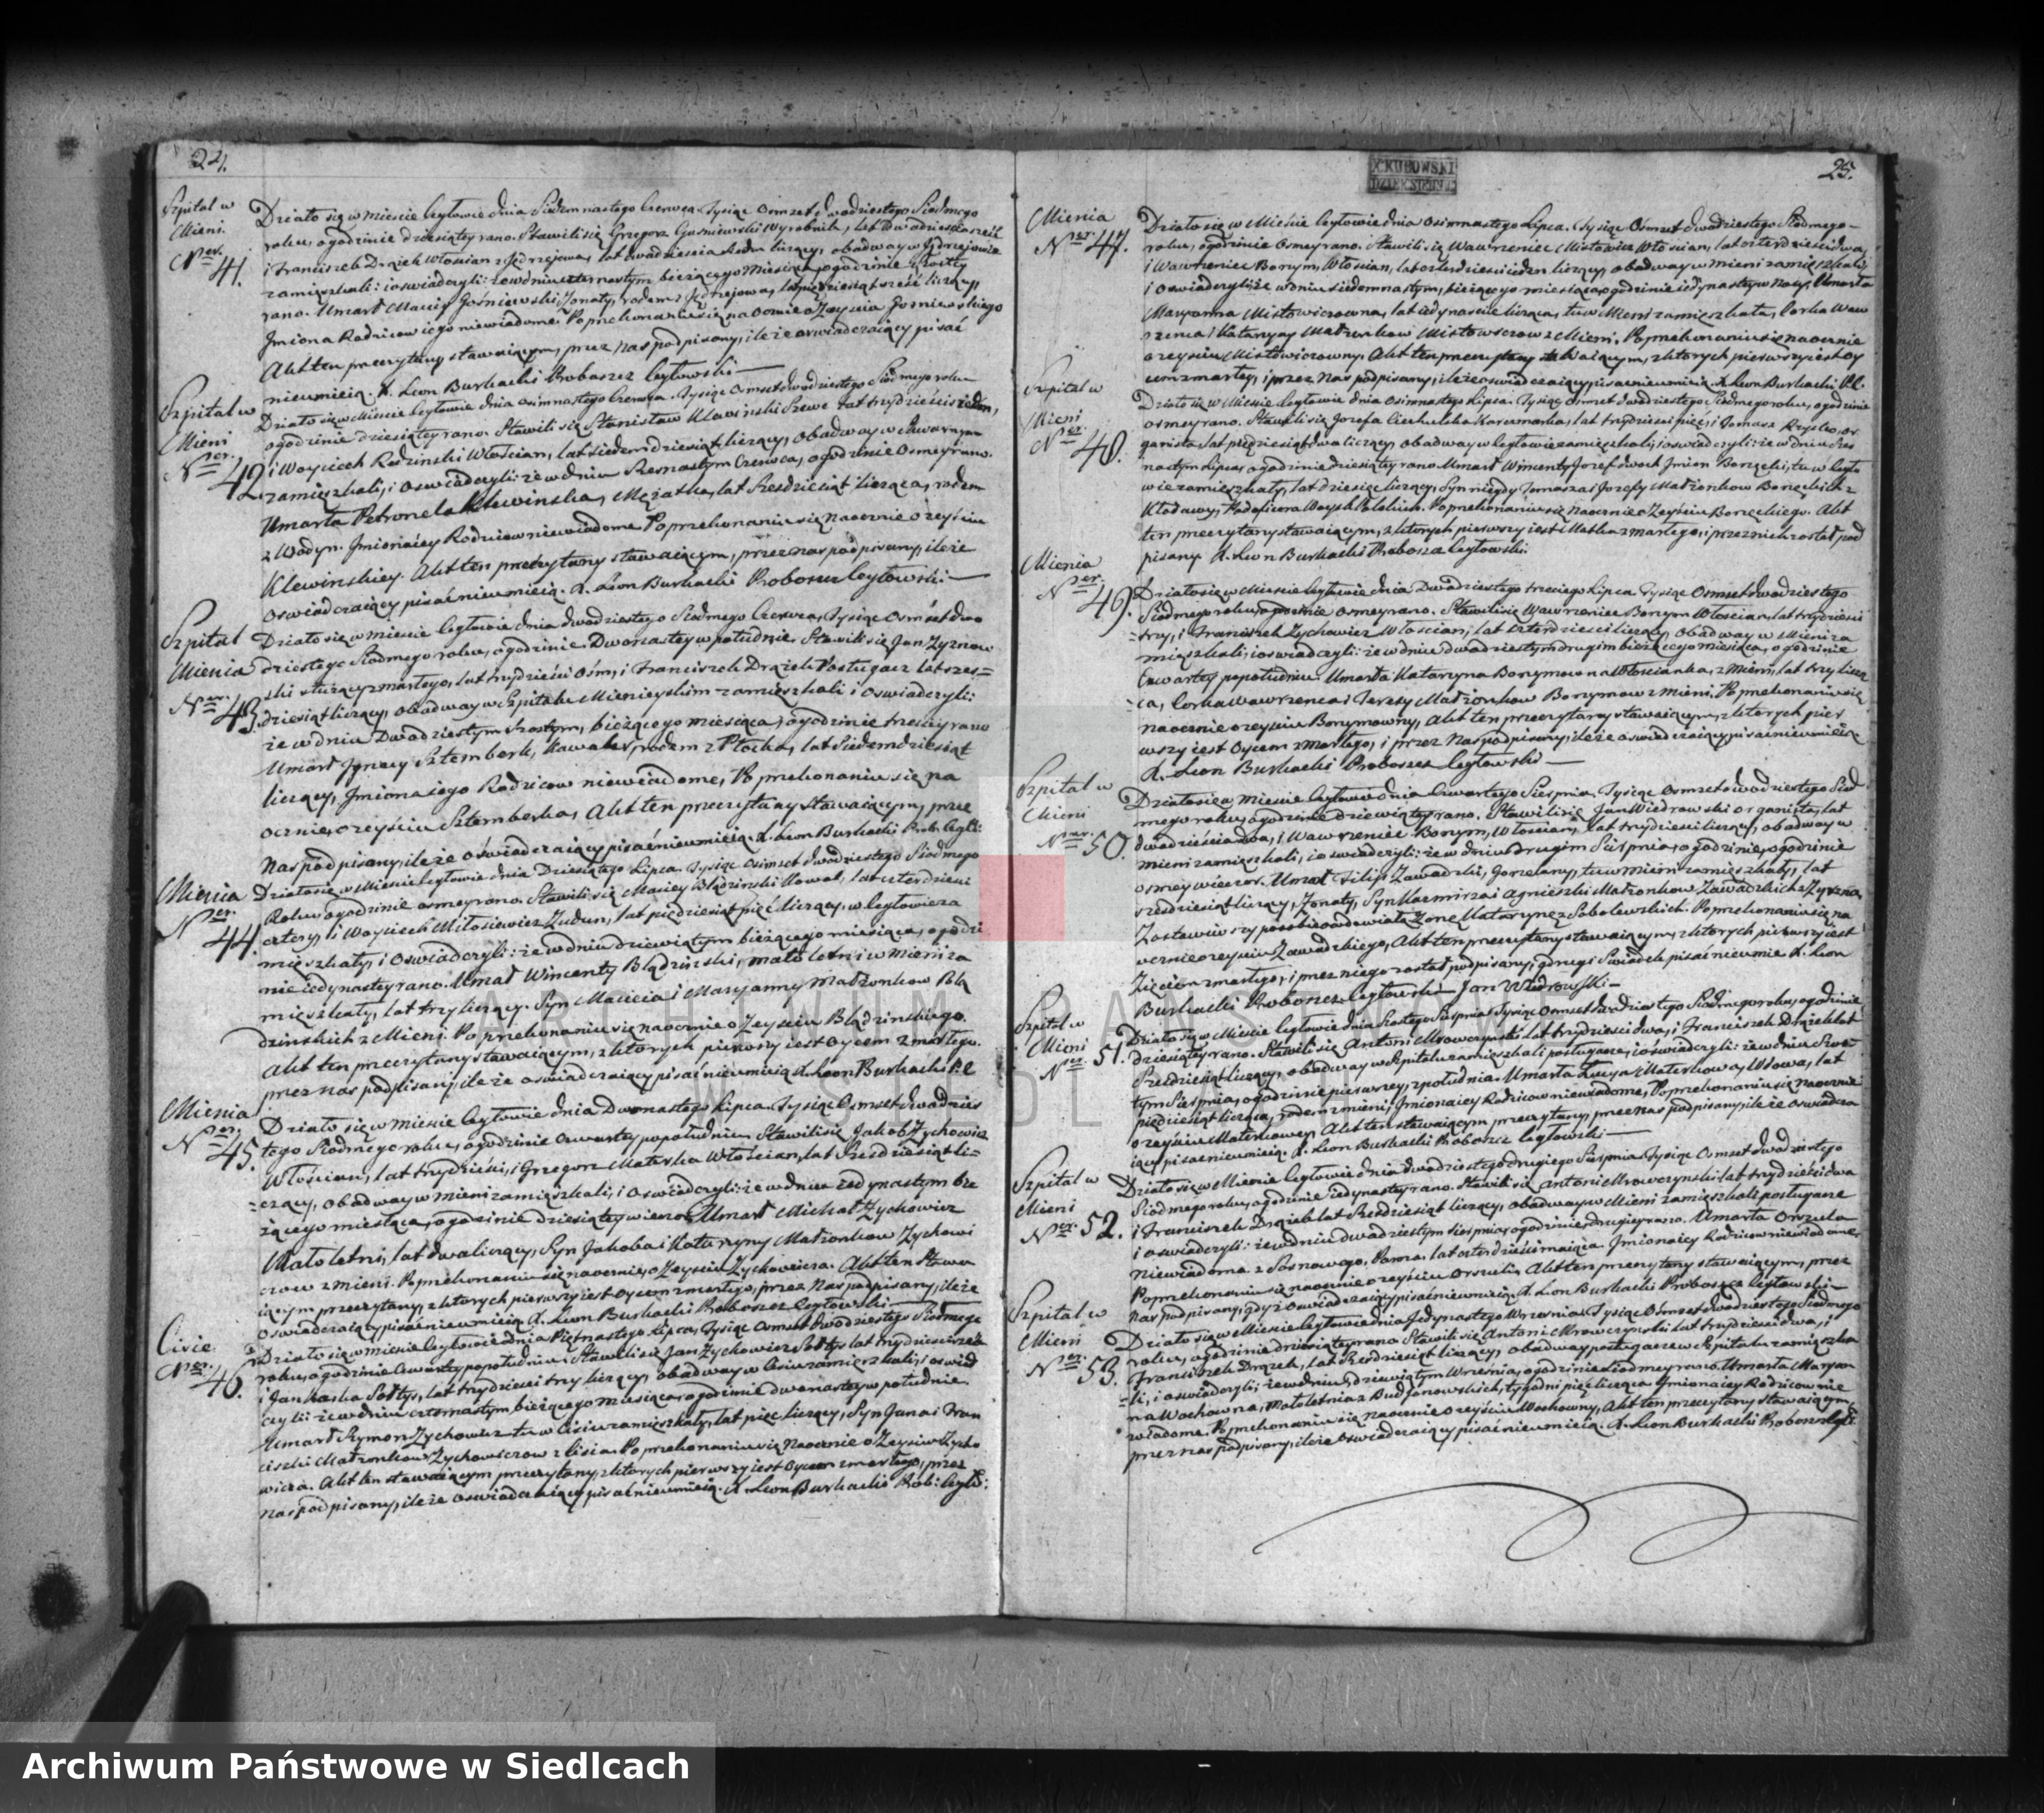 24.
Szpital w
Mieni.
N<u>er</u>. 41.
Działo się w mieście Cegłowie dnia Siedemnastego Czerwca Tysiąc Osmset dwadziestego Siodmego
roku, o godzinie dziesiątey rano. Stawili się Grzegorz Guśniewski Wyrobnik, lat
i Franciszek Drązek Włościan z Jędrzejowa, lat dwadzieścia liczący, obadway w Jędrzejowie
zamięszkali: i oświadczyli: że w dniu bieżącego Miesiąca, o godzinie Szostey
rano. Umarł Maciey Gośniewski Żonaty, rodem z Jędrzejowa, lat pięćdziesiąt sześć liczący,
Jmiona Rodzicow iego niewiadome. Po przekonaniu się na ocznie o Zeyściu Gośniewskiego
Akt ten przeczytany stawaiącym, przez nas podpisany, ile że oświadczaiący pisać
nieumieią. X. Leon Burhacki Proboszcz Cegłowski
Szpital w
Mieni
N<u>er</u>. 42.
Działo się w Mieście Cegłowie dnia osimnastego Czerwca Tysiąc Osmset dwadziestego Siodmego roku
o godzinie dziesiątey rano. Stawili się Stanisław Klewinski Szewc lat trzydzieści ieden,
i Woyciech Rodzinski Włościan, lat siedemdziesiąt liczący, obadway w
zamięszkali, i Oswiadczyli: że w dniu Szesnastym Czerwca, o godzinie Osmey rano.
Umarła Petronela Klewinska, Mężatka, lat Szesdziesiąt licząca, rodem
z Wodyn. Jmiona iey Rodzicow niewiadome Po przekonaniu się Naocznie o zeyściu
Klewinskiey. Akt ten przeczytany stawaiącym, przez nas podpisany, ile że
oswiadczaiący pisać nieumieią. X. Leon Burhacki Proboszcz Cegłowski
Szpital
Mienia
N<u>er</u>. 43.
Działo się w mieście Cegłowie dnia dwudziestego Siodmego Czerwca, Tysiąc Osmset dwa
dziestego Siodmego roku, o godzinie Dwonastey w południe. Stawili się Jan Zyznow
ski służący zmarłego, lat trzydzieści Ośm, i Franciszek Drązek Posługacz lat szes=
dziesiąt liczący, obadway w Szpitalu Mienieyskim zamięszkali i Oswiadczyli:
że w dniu Dwadziestym Szostym, bieżącego miesiąca, o godzinie trzeciey rano
Umarł Jgnacy Sztemberk, Kawaler, rodem z Płocka, lat Siedemdziesiąt
liczący, Jmiona iego Rodzicow niewiadome, Po przekonaniu się na
ocznie, o zeyściu Sztemberka, Akt ten przeczytany Stawaiącym, prze
Nas podpisany, ile że oświadczaiący pisać nieumieią. X. Leon Burhacki Prob: Cegł:
Mienia
N<u>er</u>. 44.
Działo się w Mieście Cegłowie dnia Dziesiątego Lipca Tysiąc Osimset dwadziestego Siodmego
Roku o godzinie osmey rano. Stawili się Maciey Błądzinski Kowal, lat czterdzieści
cztery, i Woyciech Miłosiewicz Zudun, lat pięćdziesiąt pięć liczący, w Cegłowie za
mięszkały, i Oswiadczyli: że w dniu dziewiątym bieżącego miesiąca, o godzi
nie iedynastey rano. Umarł Wincenty Błądzinski, małoletni w Mieni za
mięszkały, lat trzy liczący. Syn Macieia i Maryanny Małżonkow Błą
dzinskich z Mieni. Po przekonaniu się naocznie o Zeyściu Błądzinskiego.
Akt ten przeczytany stawaiącym, z ktorych pierwszy iest Oycem zmarłego.
przez nas podpisany, ile że oswiadczaiący pisać nieumieią X. Leon Burhacki P.C
Mienia
N<u>er</u>. 45.
Działo się w mieście Cegłowie dnia Dwonastego Lipca Tysiąc Osmset dwadzies
tego Siodmego roku, o godzinie czwartey popołudniu Stawili się Jakob Zychowicz
Włościan, lat trzydzieści, i Grzegorz Materka Włościan, lat Szesdziesiąt li=
=czący, obadway w Mieni zamięszkali, i Oswiadczyli: że w dniu iedynastym bie
żącego miesiąca, o godzinie dziesiątey wieczor. Umarł Michał Zychowicz
Małoletni, lat dwa liczący, Syn Jakoba i Katarzyny Małżonkow Zychowi
czow z Mieni. Po przekonaniu się naocznie, o Zeyściu Zychowicza. Akt ten Stawa
iącym przeczytany, z ktorych pierwszy iest Oycem zmarłego, przez Nas podpisany, ile że
oswiadczaiący pisać nieumieią X. Leon Burhacki Proboszcz Cegłowski
Cisie
N<u>er</u>. 46.
Działo się w mieście Cegłowie dnia Piętnastego Lipca, Tysiąc Osmset dwadziestego Siodmego
roku, o godzinie Czwartey popołudniu. Stawili się Jan Zychowicz Sołtys lat trzydzieści
i Jan Kaska Sołtys, lat trzydzieści trzy liczący, obadway w Cisiu zamięszkali, i oswiad
czyli: że w dniu czternastym bieżącego miesiąca, o godzinie dwonastey w południe.
Umarł Szymon Zychowicz tu w Cisiu zamięszkały, lat pięć liczący, Syn Jana i Fran
ciszki Małżonkow Zychowiczow z Cisia. Po przekonaniu się Naocznie o Zeyściu Zycho
wicza. Akt ten stawaiącym przeczytany, z ktorych pierwszy iest Oycem zmarłego, przez
Nas podpisany, ile że oswiadczaiący pisać nieumieią. X. Leon Burhacki Prob: Cegło:
25.
X KUROWSKI
DZIEK. SIENN.
Mienia
N<u>er</u> 47.
Działo się w Mieście Cegłowie dnia osimnastego Lipca. Tysiąc Osmset dwadziestego Siodmego
roku, o godzinie Osmey rano. Stawili się Wawrzeniec Mistowicz Włościan, lat czterdzieści dwa,
i Wawrzeniec Borym, Włościan, lat czterdzieści ieden liczący, obadway w Mieni zamięszkali,
i oswiadczyli: że w dniu siedemnastym, bieżącego miesiąca, o godzinie iedynastey w Nocy, Umarła
Maryanna Mistowiczowna, lat iedynaście licząca, tu w Mieni zamięszkała, Corka Waw
rzenca i Katarzyny Małżonkow Mistowiczow z Mieni. Po przekonaniu się naocznie
o zeyściu Mistowiczowny, Akt ten przeczytany stawaiącym, z ktorych pierwszy iest Oy
cem zmarłey, i przez Nas podpisany, ile że oswiadczaiący pisać nieumieią. X. Leon Burhacki P.C.
Szpital w
Mieni
N<u>er</u>. 48.
Działo się w Mieście Cegłowie dnia Osimnastego Lipca. Tysiąc osmset dwadziestego Siodmego roku, o godzinie
osmey rano. Stawili się Jozefa Ciechulska Karczmarka, lat trzydzieści pięć, i Tomasz Rzysko, or
ganista, lat pięćdziesiąt dwa liczący, obadway w Cegłowie zamięszkali, i oswiadczyli: że w dniu Szes
nastym Lipca, o godzinie dziesiątey rano Umarł Wincenty Jozef dwoch Jmion Borzęcki, tu w Cegło
wie zamięszkały, lat dziesięć liczący, Syn niegdy Tomasza i Jozefy Małżonkow Borzęckich z
Kłodawy, Podoficera Woysk Polskich. Po przekonaniu się Naocznie o Zeyściu Borzęckiego. Akt
ten przeczytany stawaiącym, z ktorych pierwszy iest Matka zmarłego, i przez nich został pod
pisany. X. Leon Burhacki Proboszcz Cegłowski.
Mienia
N<u>er</u>. 49.
Działo się w Mieście Cegłowie dnia Dwadziestego trzeciego Lipca Tysiąc Osmset dwadziestego
Siodmego roku, o godzinie Osmey rano. Stawili się Wawrzeniec Borym Włościan, lat trzydzieści
=trzy, i Franciszek Zychowicz Włościan, lat czterdzieści liczący, obadway w Mieni za
mięszkali, i oswiadczyli: że w dniu dwadziestym drugim bieżącego miesiąca, o godzinie
Czwartey popołudniu. Umarła Katarzyna Borymowna Włościanka, z Mieni, lat trzy liczą
=ca, Corka Wawrzenca i Teresy Małżonkow Borymow z Mieni. Po przekonaniu się
naocznie o zeyściu Borymowny, Akt ten przeczytany stawaiącym, z ktorych pier
wszy iest Oycem zmarłego, i przez Nas podpisany, ile że oswiadczaiący pisać nieumieią
X. Leon Burhacki Proboszcz Cegłowski
Szpital w
Mieni
N<u>er</u> 50.
Działo się w Mieście Cegłowie dnia Czwartego Sierpnia. Tysiąc Osmset dwadziestego Siod
mego roku, o godzinie dziewiątey rano. Stawili się Jan Wiedrowski organista, lat
dwadzieścia dwa, i Wawrzeniec Borym, Włościan, lat trzydzieści liczący, obadway w
Mieni zamięszkali, i oswiadczyli: że w dniu Drugim Sierpnia, o godzinie, o godzinie
osmey wieczor. Umarł Filip Zawadzki, Gorzelany, tu w Mieni zamięszkały, lat
szesdziesiąt liczący, Żonaty, Syn Kazmirza i Agnieszki Małżonkow Zawadzkich z
Zostawiwszy po sobie owdowiałą Żonę Katarzynę z Sobolewskich. Po przekonaniu się na
ocznie o zeyściu Zawadzkiego, Akt ten przeczytany stawaiącym, z ktorych pierwszy iest
Zięciem zmarłego, i przez niego został podpisany, a drugi Swiadek pisać nieumie X. Leon
Burhacki Proboszcz Cegłowski Jan Wiedrowski
Szpital w
Mieni
N<u>er</u> 51.
Działo się w Mieście Cegłowie dnia Szostego Sierpnia Tysiąc Osmset dwadziestego Siodmego roku, o godzinie
dziesiątey rano. Stawili się Antoni Mrowczynski lat trzydzieści dwa, i Franciszek Drązek lat
Szesdziesiąt liczący, obadway w Szpitalu zamięszkali posługacze, i oswiadczyli: że w dniu
tym Sierpnia, o godzinie pierwszey, z południa. Umarła Łucya Materkowa, Wdowa, lat
pięćdziesiąt licząca, rodem z Mieni, Jmiona iey Rodzicow niewiadome, Po przekonaniu się Naocznie
o zeyściu Materkowey Akt ten stawaiącym przeczytany, przez nas podpisany, ile że oswiadcza
iący pisać nieumieią. X. Leon Burhacki Proboszcz Cegłowski
Szpital w
Mieni
N<u>er</u>. 52.
Działo się w Mieście Cegłowie dnia dwadziestego drugiego Sierpnia Tysiąc Osmset dwadziestego
Siodmego roku, o godzinie iedynastey rano. Stawili się Antoni Mrowczynski lat trzydzieści dwa
i Franciszek Drązek lat Szesdziesiąt liczący, obadway w Mieni zamięszkali posługacze
i oswiadczyli: że w dniu dwadziestym Sierpnia, o godzinie, drugiey rano. Umarła Orszula
Niewiadoma z Sosnowego, Panna. lat czterdzieści maiąca. Jmiona iey Rodzicow niewiadome,
Po przekonaniu się naocznie o zeyściu Orszuli, Akt ten przeczytany stawaiącym, przez
Nas podpisany, gdyż oswiadczaiący pisać nieumieią X. Leon Burhacki Proboszcz Cegłowski
Szpital w
Mieni
N<u>er</u>. 53.
Działo się w Mieście Cegłowie dnia Jedynastego Wrzesnia. Tysiąc Osmset dwadziestego Siodmego
roku, o godzinie dziesiątey rano Stawili się Antoni Mrowczynski lat trzydzieści dwa, i
Franciszek Drązek, lat Szesdziesiąt liczący, obadway posługacze w Szpitalu zamięszka
=li, i oswiadczyli, że w dniu dziewiątym Wrzesnia, o godzinie siodmey rano. Umarła Maryan
na Wochowna, Małoletnia z Bud Janowskich, tygodni pięć licząca Jmiona iey Rodzicow nie
wiadome. Po przekonaniu się Naocznie o zeyściu Wochowny, Akt ten przeczytany stawaiącym,
przez nas podpisany, ile że Oswiadczaiący pisać nieumieią. X. Leon Burhacki Proboszcz Cegł:
ARCHIWUM PAŃSTWOWE
W SIEDLCACH
Archiwum Państwowe w Siedlcach